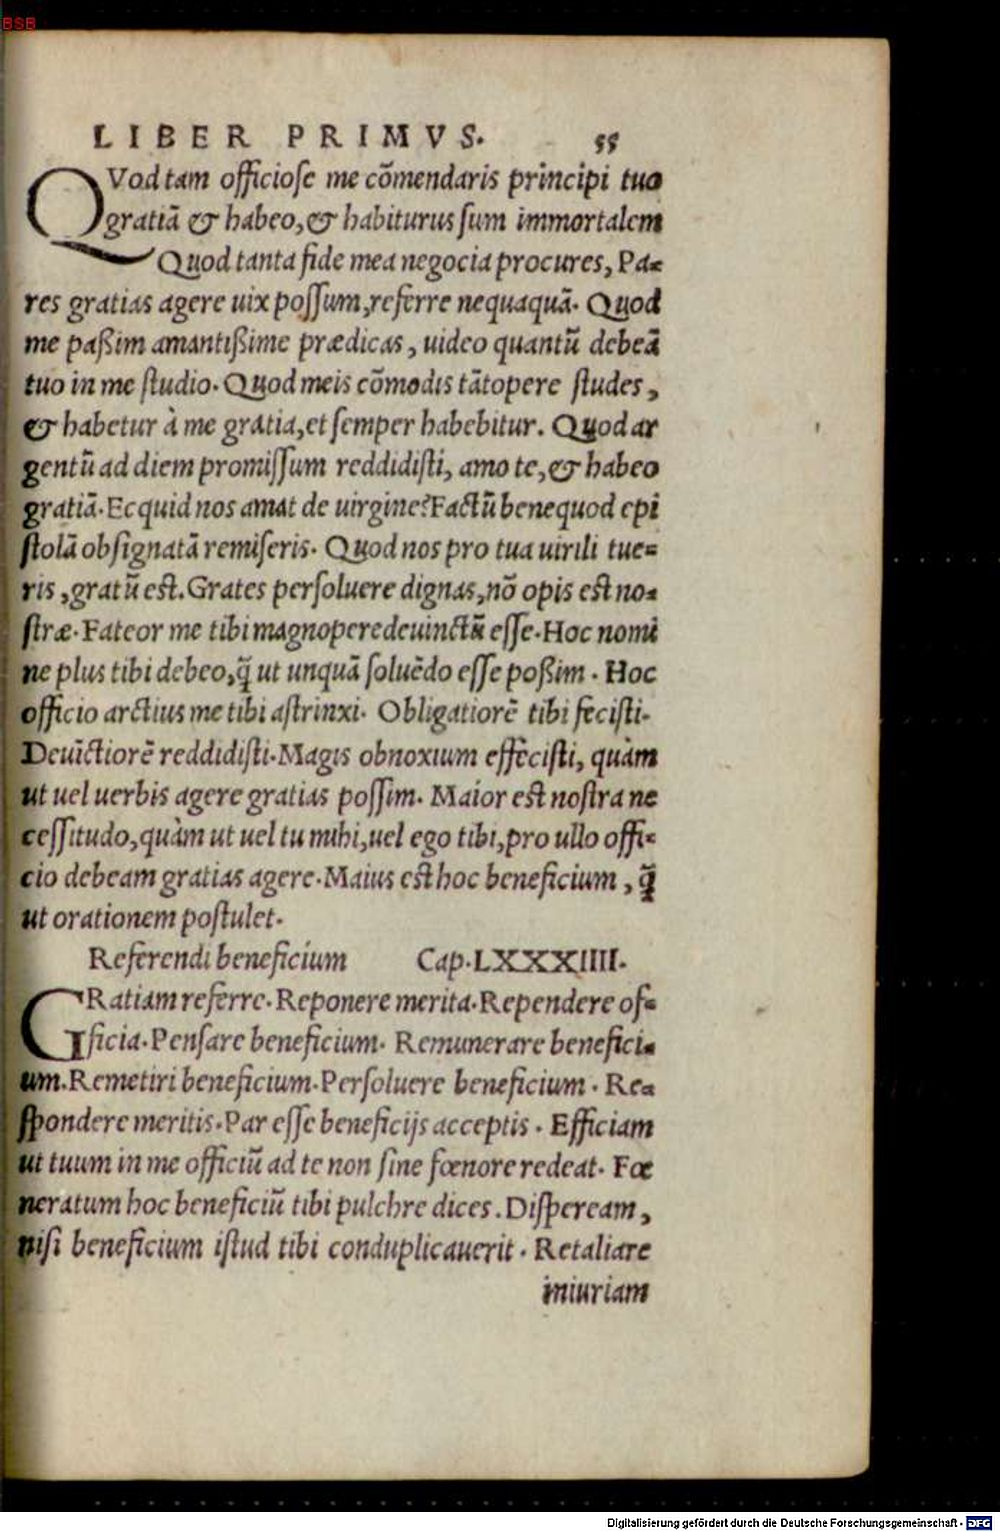 BSB
LIBER PRIMVS. 55
QVod tam officiose me cõmendaris principi tuo
gratiã & habeo, & habiturus sum immortalem
Quod tanta fide mea negocia procures, Pa-
res gratias agere uix possum, referre nequaquã. Quod
me paßim amantißime prædicas, uideo quantũ debeã
tuo in me studio. Quod meis cõmodis tãtopere studes,
& habetur à me gratia, et semper habebitur. Quod ar
gentũ ad diem promissum reddidisti, amo te, & habeo
gratiã. Ecquid nos amat de uirgine? Factũ bene quod epi
stolã obsignatã remiseris. Quod nos pro tua uirili tue-
ris, gratũ est. Grates persoluere dignas, nõ opis est no-
stræ. Fateor me tibi magnopere deuinctũ esse. Hoc nomi
ne plus tibi debeo, q̃ ut unquã soluẽdo esse poßim. Hoc
officio arctius me tibi astrinxi. Obligatiorẽ tibi fecisti.
Deuĩctiorẽ reddidisti. Magis obnoxium effecisti, quàm
ut uel uerbis agere gratias possim. Maior est nostra ne
cessitudo, quàm ut uel tu mihi, uel ego tibi, pro ullo offi-
cio debeam gratias agere. Maius est hoc beneficium, q̃
ut orationem postulet.
Referendi beneficium Cap. LXXXIIII.
GRatiam referre. Reponere merita. Rependere of-
ficia. Pensare beneficium. Remunerare benefici-
um. Remetiri beneficium. Persoluere beneficium. Re-
spondere meritis. Par esse beneficijs acceptis. Efficiam
ut tuum in me officiũ ad te non sine fœnore redeat. Fœ
neratum hoc beneficiũ tibi pulchre dices. Dispeream,
nisi beneficium istud tibi conduplicauerit. Retaliare
iniuriam
Digitalisierung gefördert durch die Deutsche Forschungsgemeinschaft - DFG